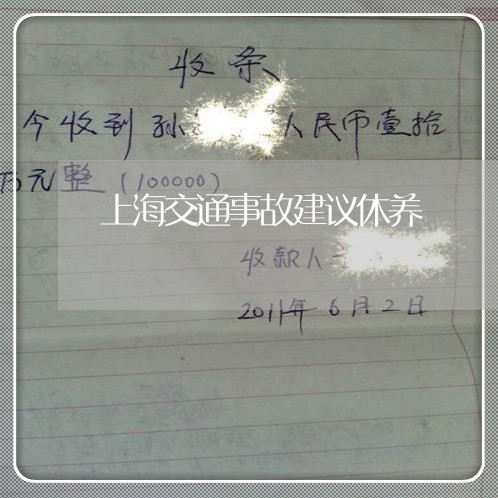 收条
今收到孙 人民币壹拾
万元整（100000）
上海交通事故建议休养
收款人
2011年6月2日